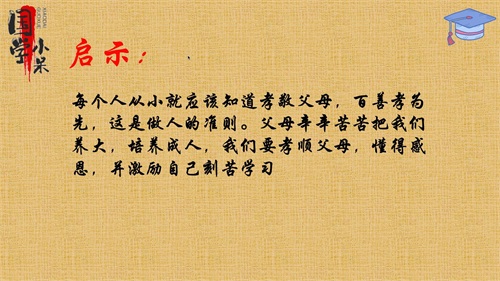 国学小米
启示：
每个人从小就应该知道孝敬父母，百善孝为
先，这是做人的准则。父母辛辛苦苦把我们
养大，培养成人，我们要孝顺父母，懂得感
恩，并激励自己刻苦学习